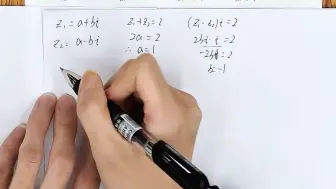 z₁=a+bi
z₂=a-bi
z₁+z₂=2
2a=2
∴a=1
(z₁-z₂)i=2
2bi·i=2
-2b=2
b-1